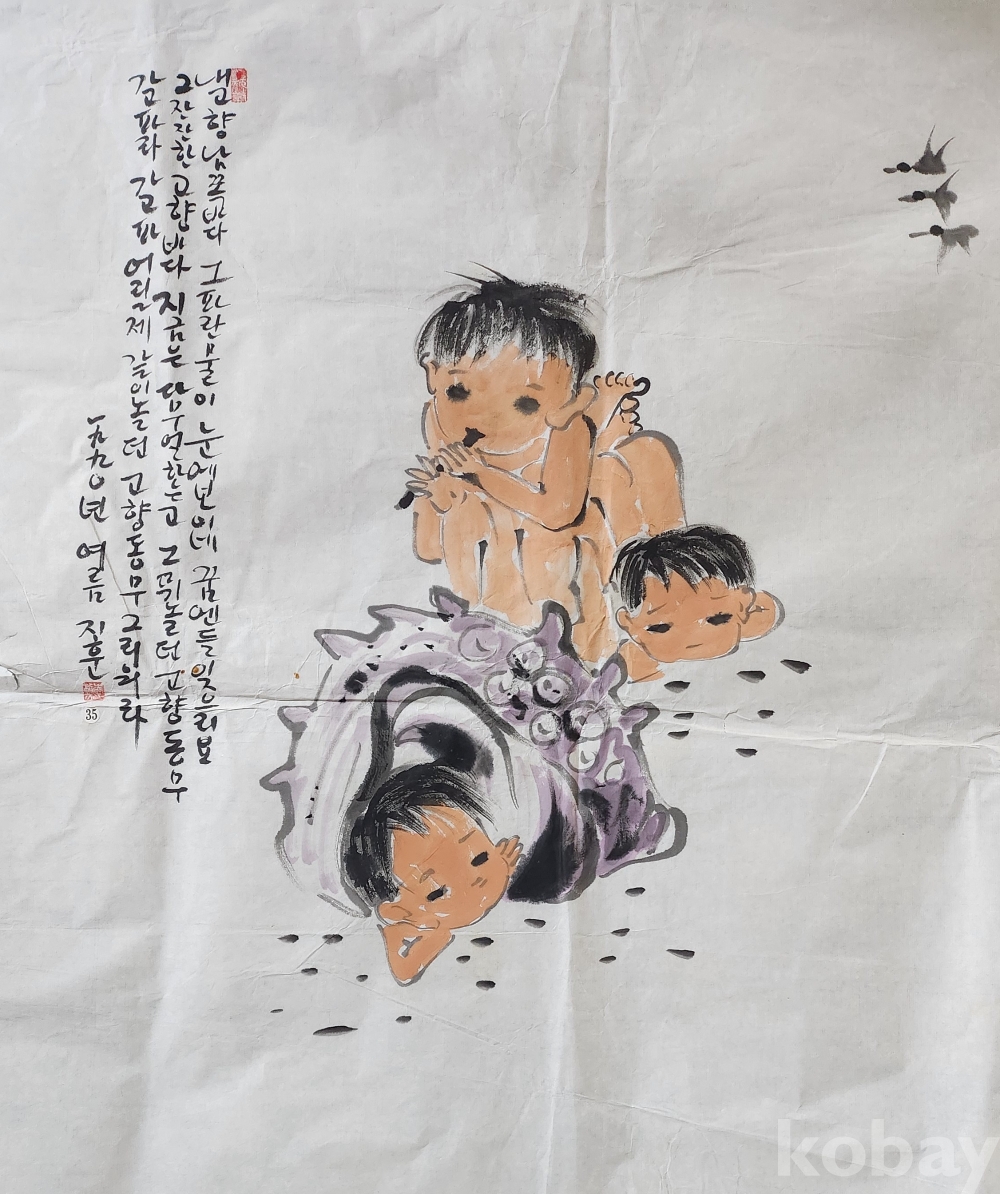 내고향남쪽바다 그파란물이 눈에보이네 꿈엔들잊으리오
그잔잔한고향바다 지금은 다무얼하는고 그뛰놀던고향동무
가고파라 가고파 어릴제 같이놀던 고향동무그리워라
一九九〇년 여름 지훈
35
kobay